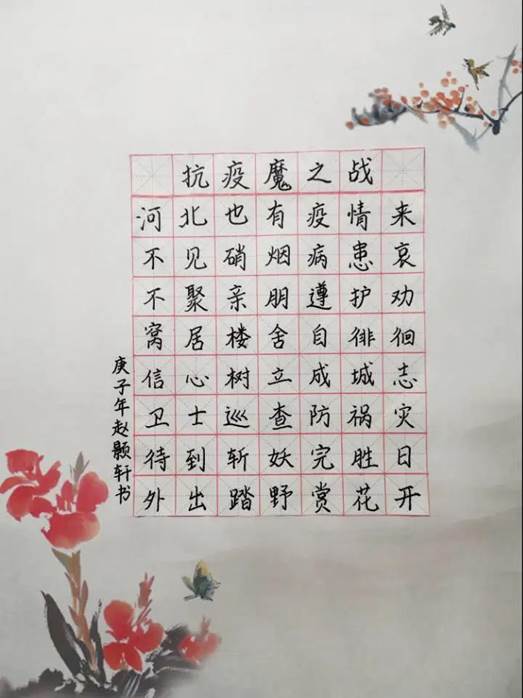 抗疫魔之战
河北也有疫情来
不见硝烟病患哀
不聚亲朋遵护劝
窝居楼舍自徘徊
信心树立成城志
卫士巡查防祸灾
待到斩妖完胜日
外出踏野赏花开
庚子年赵颢轩书